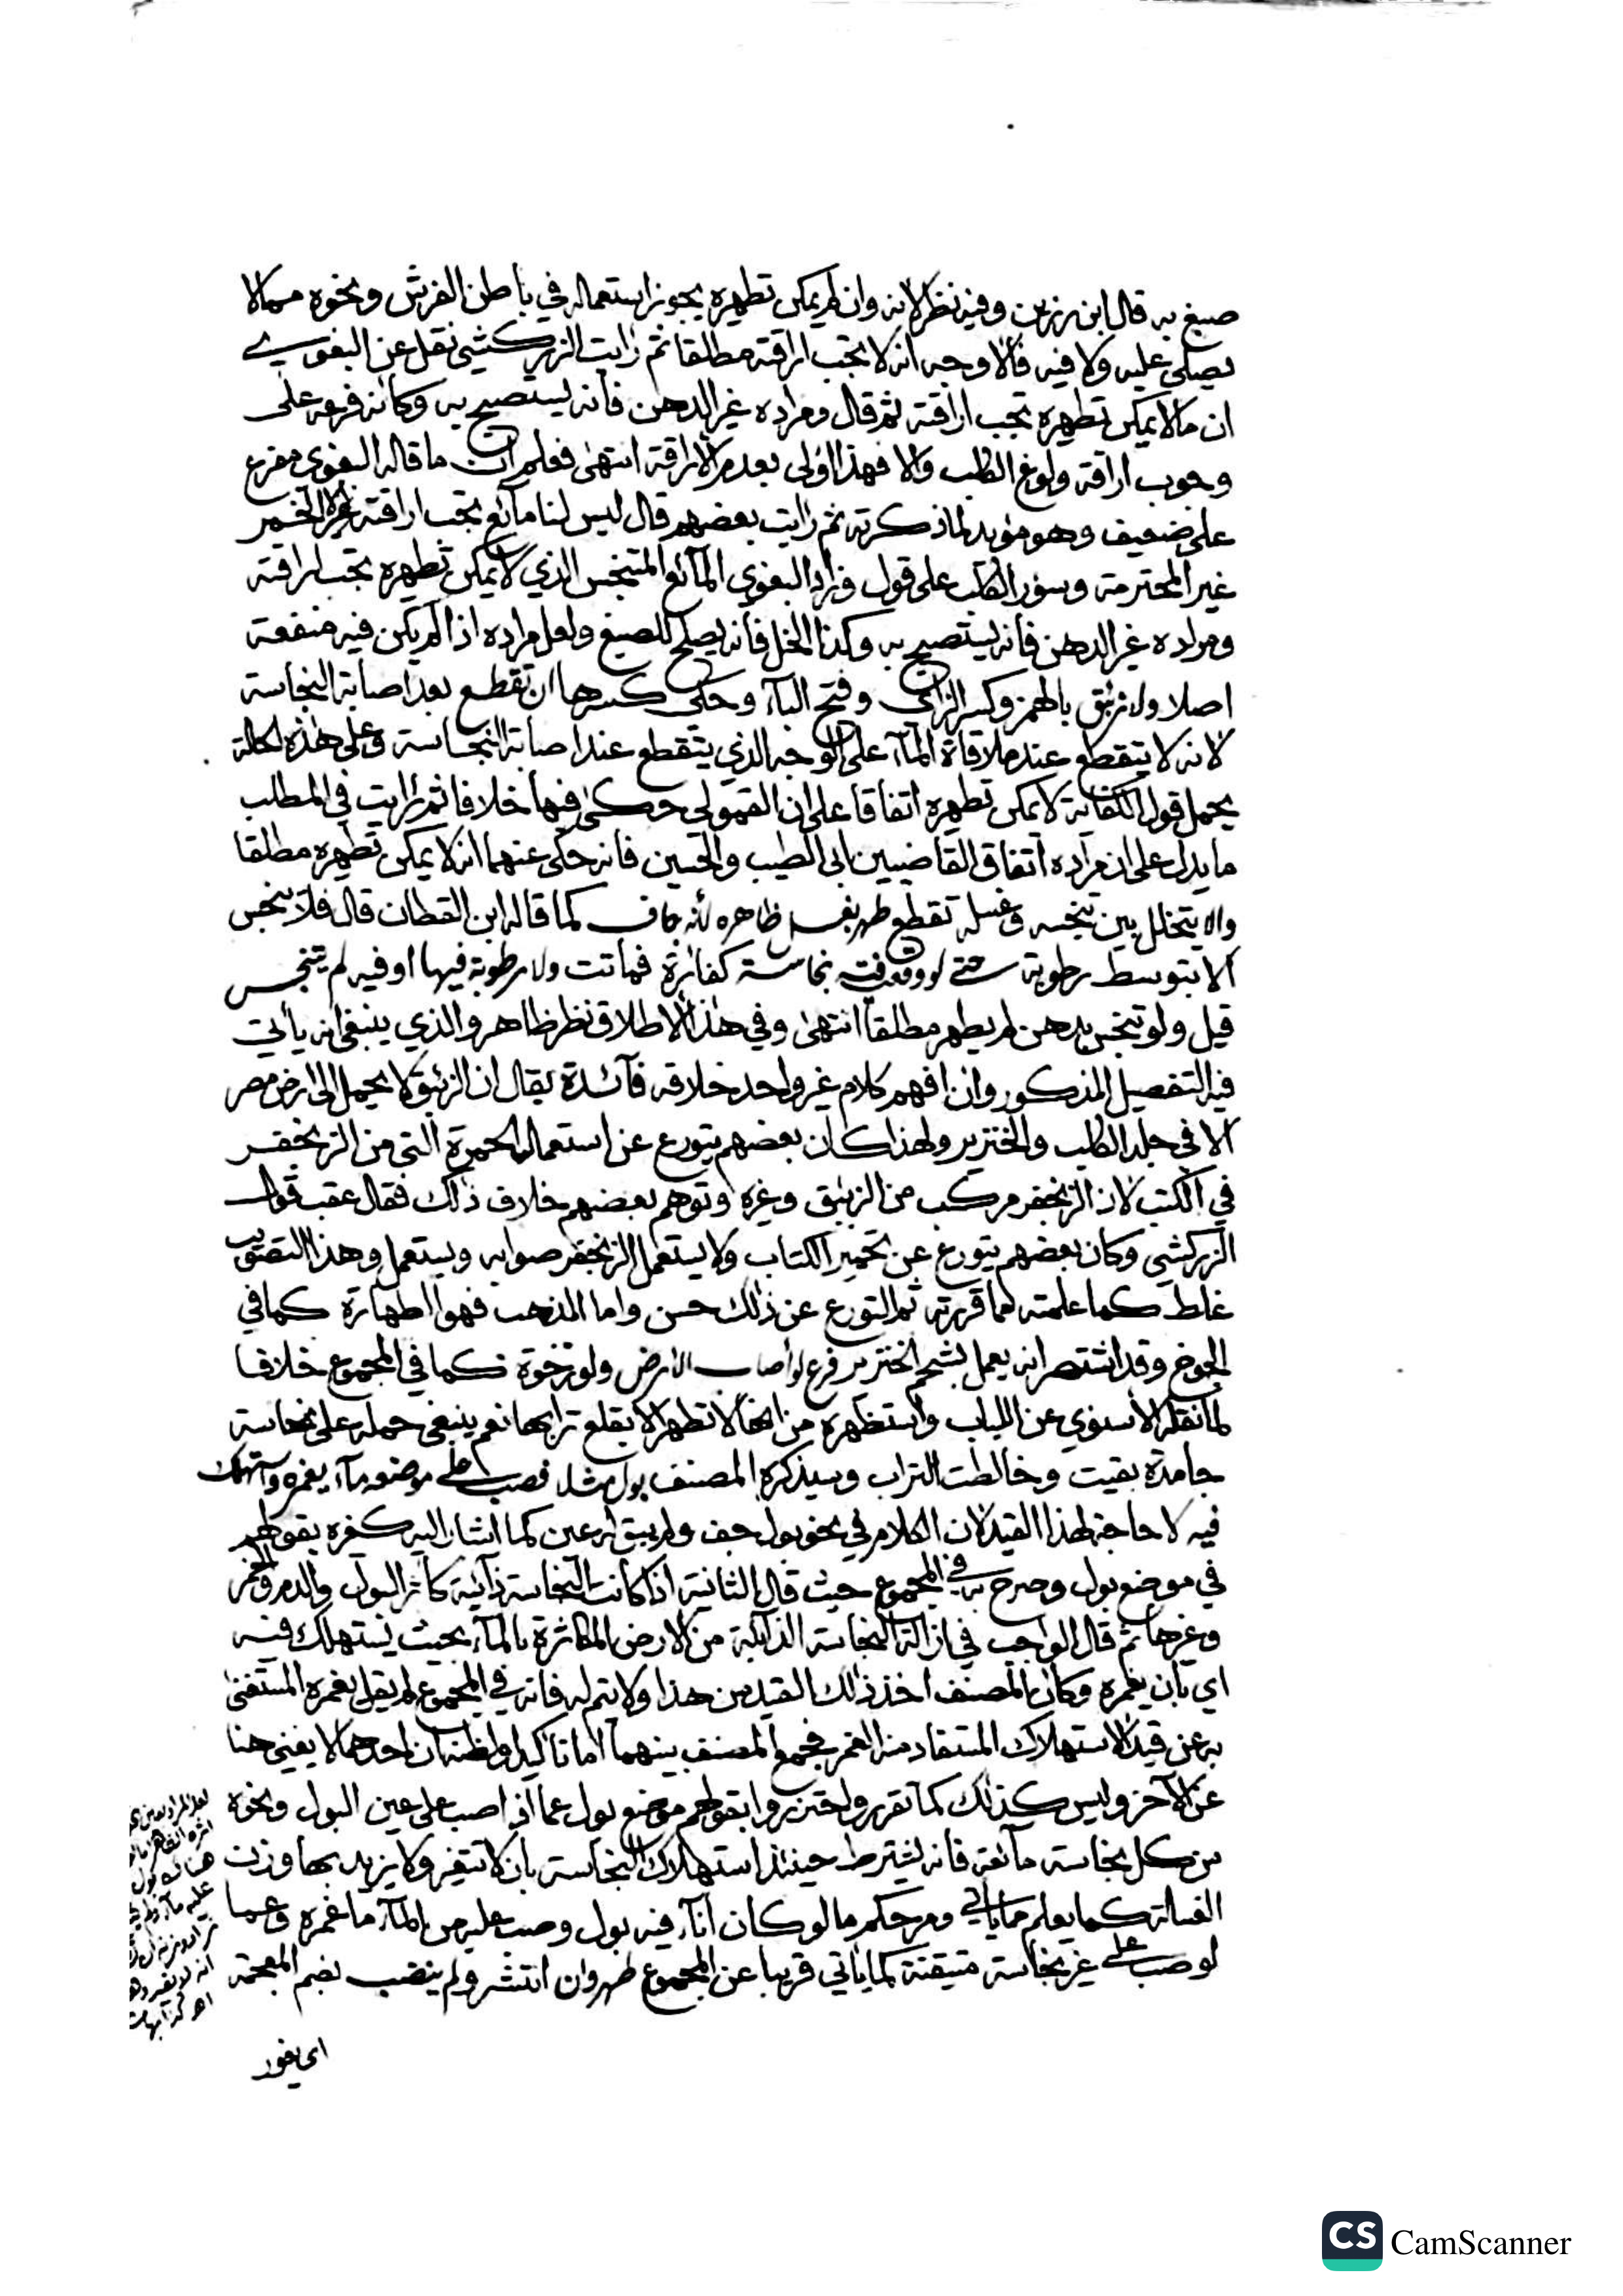 صبغ به قال ابن رزين وفيه نظر لانه وان لم يمكن تطهيره يجوز استعماله في باطن الفرش ونحوه مما لا
يصلى عليه ولا فيه فالاوجه انه لا تجب اراقته مطلقا ثم رايت الزركشي نقل عن البغوي
ان ما لا يمكن تطهيره تجب اراقته ثم قال ومراده غير الدهن فانه يستصبح به وكانه فرعه على
وجوب اراقة ولوغ الكلب والا فهذا اولى بعدم الاراقة انتهى فعلم ان ما قاله البغوي مفرع
على ضعيف وهو مؤيد لما ذكرته ثم رايت بعضهم قال ليس لنا مائع تجب اراقته غير الخمر
غير المحترمة وسؤر الكلب على قول وزاد البغوي المائع المتنجس الذي لا يمكن تطهيره تجب اراقته
ومراده غير الدهن فانه يستصبح به وكذا الخل فانه يصلح للصبغ ولعل مراده اذا لم يكن فيه منفعة
اصلا ولا زئبق بالهمز وكسر الزاي وفتح الباء وحكى كسرها ان تقطع بعد اصابة النجاسة
لانه لا يتقطع عند ملاقاة الماء على الوجه الذي يتقطع عند اصابة النجاسة وعلى هذه الحالة
يحمل قول الكفاية لا يمكن تطهيره اتفاقا على ان القمولي حكى فيها خلافا ثم رايت في المطلب
ما يدل على ان مراده اتفاق القاضيين ابي الطيب والحسين فانه حكى عنهما انه لا يمكن تطهيره مطلقا
والا يتخلل بين تنجسه وغسله تقطع طهر بغسل ظاهره لانه جاف كما قاله ابن القطان قال فلا ينجس
الا بتوسط رطوبة حتى لو وقعت فيه نجاسة كفارة فماتت ولا رطوبة فيها او فيه لم يتنجس
قيل ولو تنجس بدهن لم يطهر مطلقا انتهى وفي هذا الاطلاق نظر ظاهر والذي ينبغي انه ياتي
فيه التفصيل المذكور وان افهم كلام غير واحد خلافه فائدة يقال ان الزئبق لا يحمل الى ارض مصر
الا في جلد الكلب والخنزير ولهذا كان بعضهم يتورع عن استعمال الحمرة التي من الزنجفر
في الكتب لان الزنجفر مركب من الزئبق وغيره وتوهم بعضهم خلاف ذلك فقال عقب قول
الزركشي وكان بعضهم يتورع عن تحمير الكتاب ولا يستعمل الزنجفر صوابه ويستعمل وهذا التصويب
غلط كما علمته مما قررته ثم التورع عن ذلك حسن واما المذهب فهو الطهارة كما في
الجوخ وقد اشتهر انه يعمل بشحم الخنزير فرع لو اصاب الارض ولو رخوة كما في المجموع خلافا
لما نقله الاسنوي عن اللباب واستظهره من انها لا تطهر الا بقلع ترابها نعم ينبغي حمله على نجاسة
جامدة بقيت وخالطت التراب وسيذكره المصنف بول مثلا فصب على موضعه ماء يغمره واستهلك
فيه لا حاجة لهذا القيد لان الكلام في نحو بول جف ولم يبق له عين كما اشار اليه كغيره بقولهم
في موضع بول وصرح به في المجموع حيث قال الثانية اذا كانت النجاسة ذائبة كاثر البول والدم والخمر
وغيرها ثم قال الواجب في ازالة النجاسة الذائبة من الارض المكاثرة بالماء بحيث تستهلك فيه
اي بان يغمره وكان المصنف اخذ ذلك القيد من هذا ولا يتم له فانه في المجموع لم يقل يغمره المستغنى
به عن قيد الاستهلاك المستفاد منه الغمر فجمع المصنف بينهما اما تاكيدا او لظنه ان احدهما لا يغني هنا
عن الآخر وليس كذلك كما تقرر واحترزوا بقولهم موضع بول عما اذا صب على عين البول ونحوه
من كل نجاسة مائعة فانه يشترط حينئذ استهلاك النجاسة بان لا تتغير ولا يزيد بها وزن
الغسالة كما يعلم مما ياتي ومر حكم ما لو كان اناء فيه بول وصب عليه من الماء ما غمره وعما
لو صب على غير نجاسة متيقنة كما ياتي قريبا عن المجموع طهر وان انتشر ولم ينضب بضم المعجمة
اي يغور